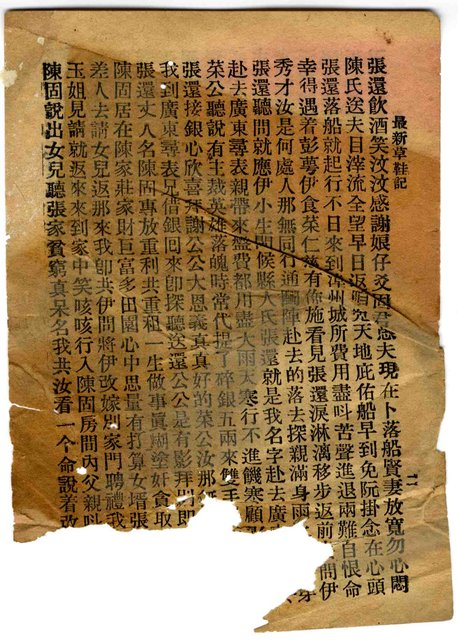 最新草鞋記
二
張還飲酒笑汶汶感謝娘仔爻君慈夫現在卜落船賢妻放寬勿心悶
陳氏送夫目滓流全望早日返天地庇佑船早到免阮掛念在心頭
張還落船就起行不日來到漳州城所費用盡叫苦聲進退兩難自恨命
幸得遇着彭萼伊食菜仁慈有佈施看見張還淚淋漓移步返前問伊
秀才汝是何處人那無同行通鬪陣赴去的落去探親滿身雨
張還聽問就應伊小生侯縣人氏張還就是我名字赴去廣
赴去廣東尋表親帶來盤費都用盡大雨大寒行不進饑寒顧
菜公聽說有主裁英雄落魄時常代提了碎銀五兩來雙手
張還接銀心欣喜拜謝公公大恩義真真好的菜公汝那
我到廣東尋表兄借銀回來卽探聽送還公公是有影拜別卽
張還丈人名陳固專放重利共重租一生做事真糊塗奸貪取
陳固居在陳家莊家財巨富多田園心中思量有打算女壻張
差人去請女兒返那來我卽共伊問將伊改嫁別家門聘禮我
玉姐見請就返來來到家中笑咳咳行入陳固房間內父親叫
陳固說出女兒聽張家貧窮真呆名我共汝看一个命說着改